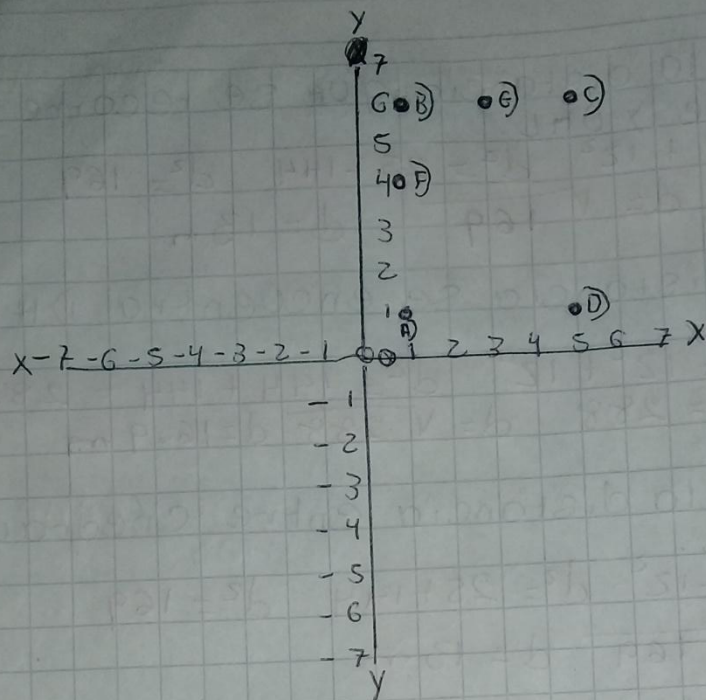 Y
7
6 B) E) C)
5
4 F)
3
2
1 D)
A)
X -7 -6 -5 -4 -3 -2 -1 0 1 2 3 4 5 6 7 X
-1
-2
-3
-4
-5
-6
-7
Y